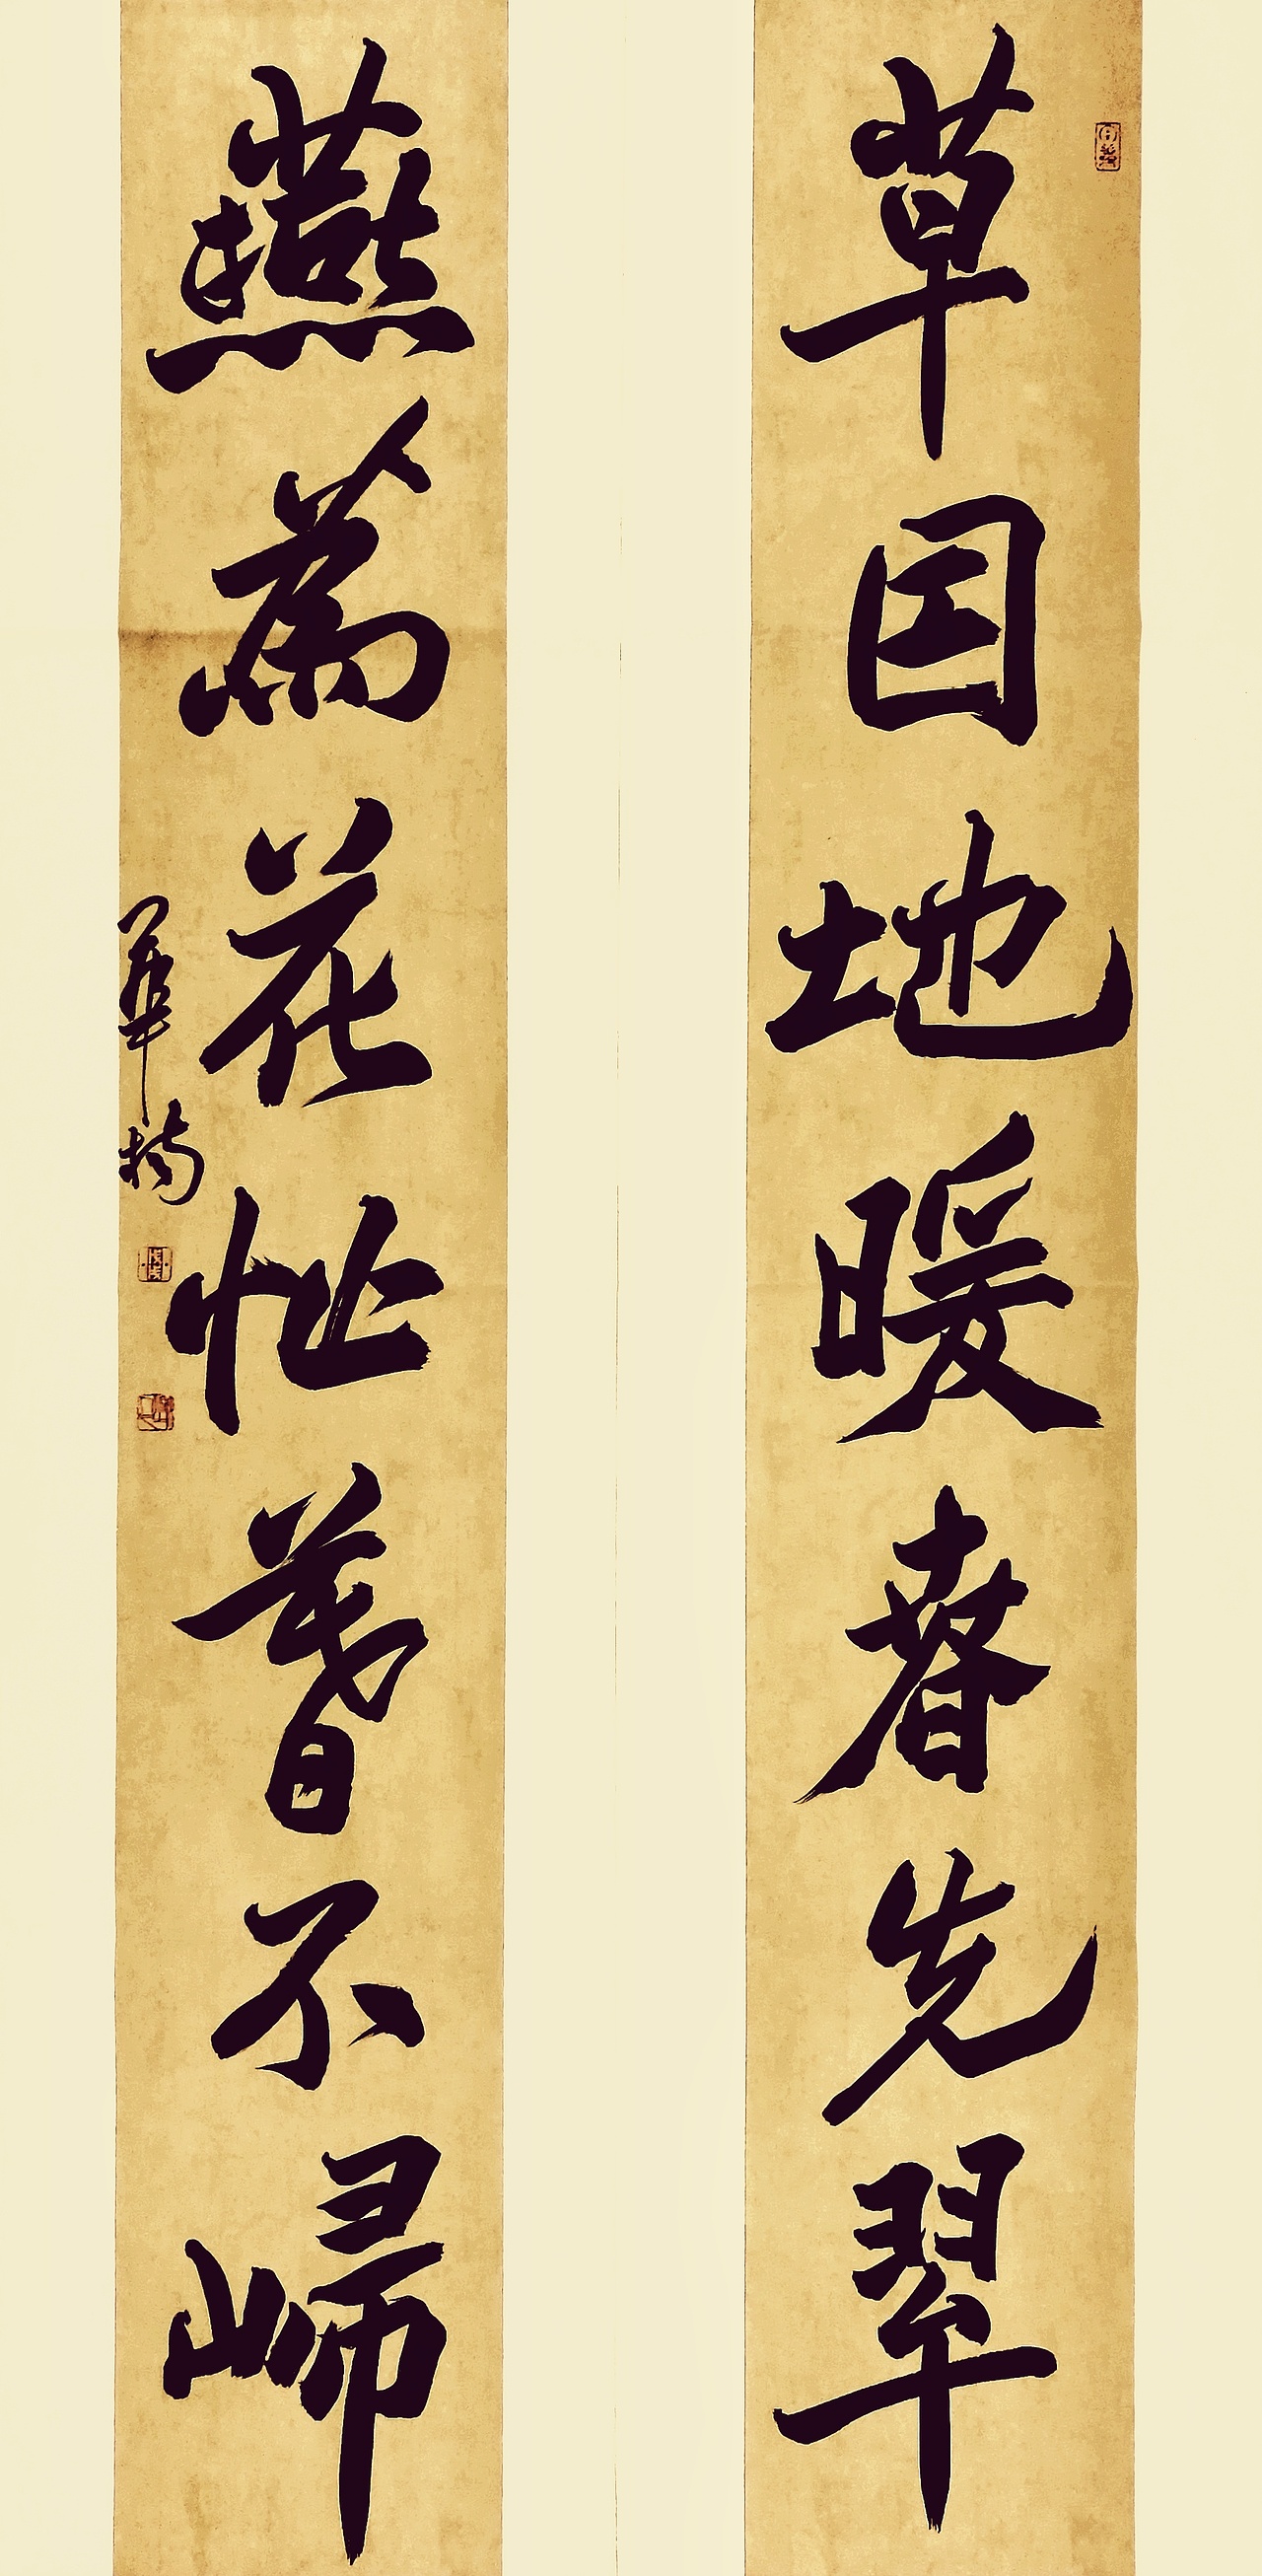 草因地暖春先翠
燕為花忙暮不歸
華楠